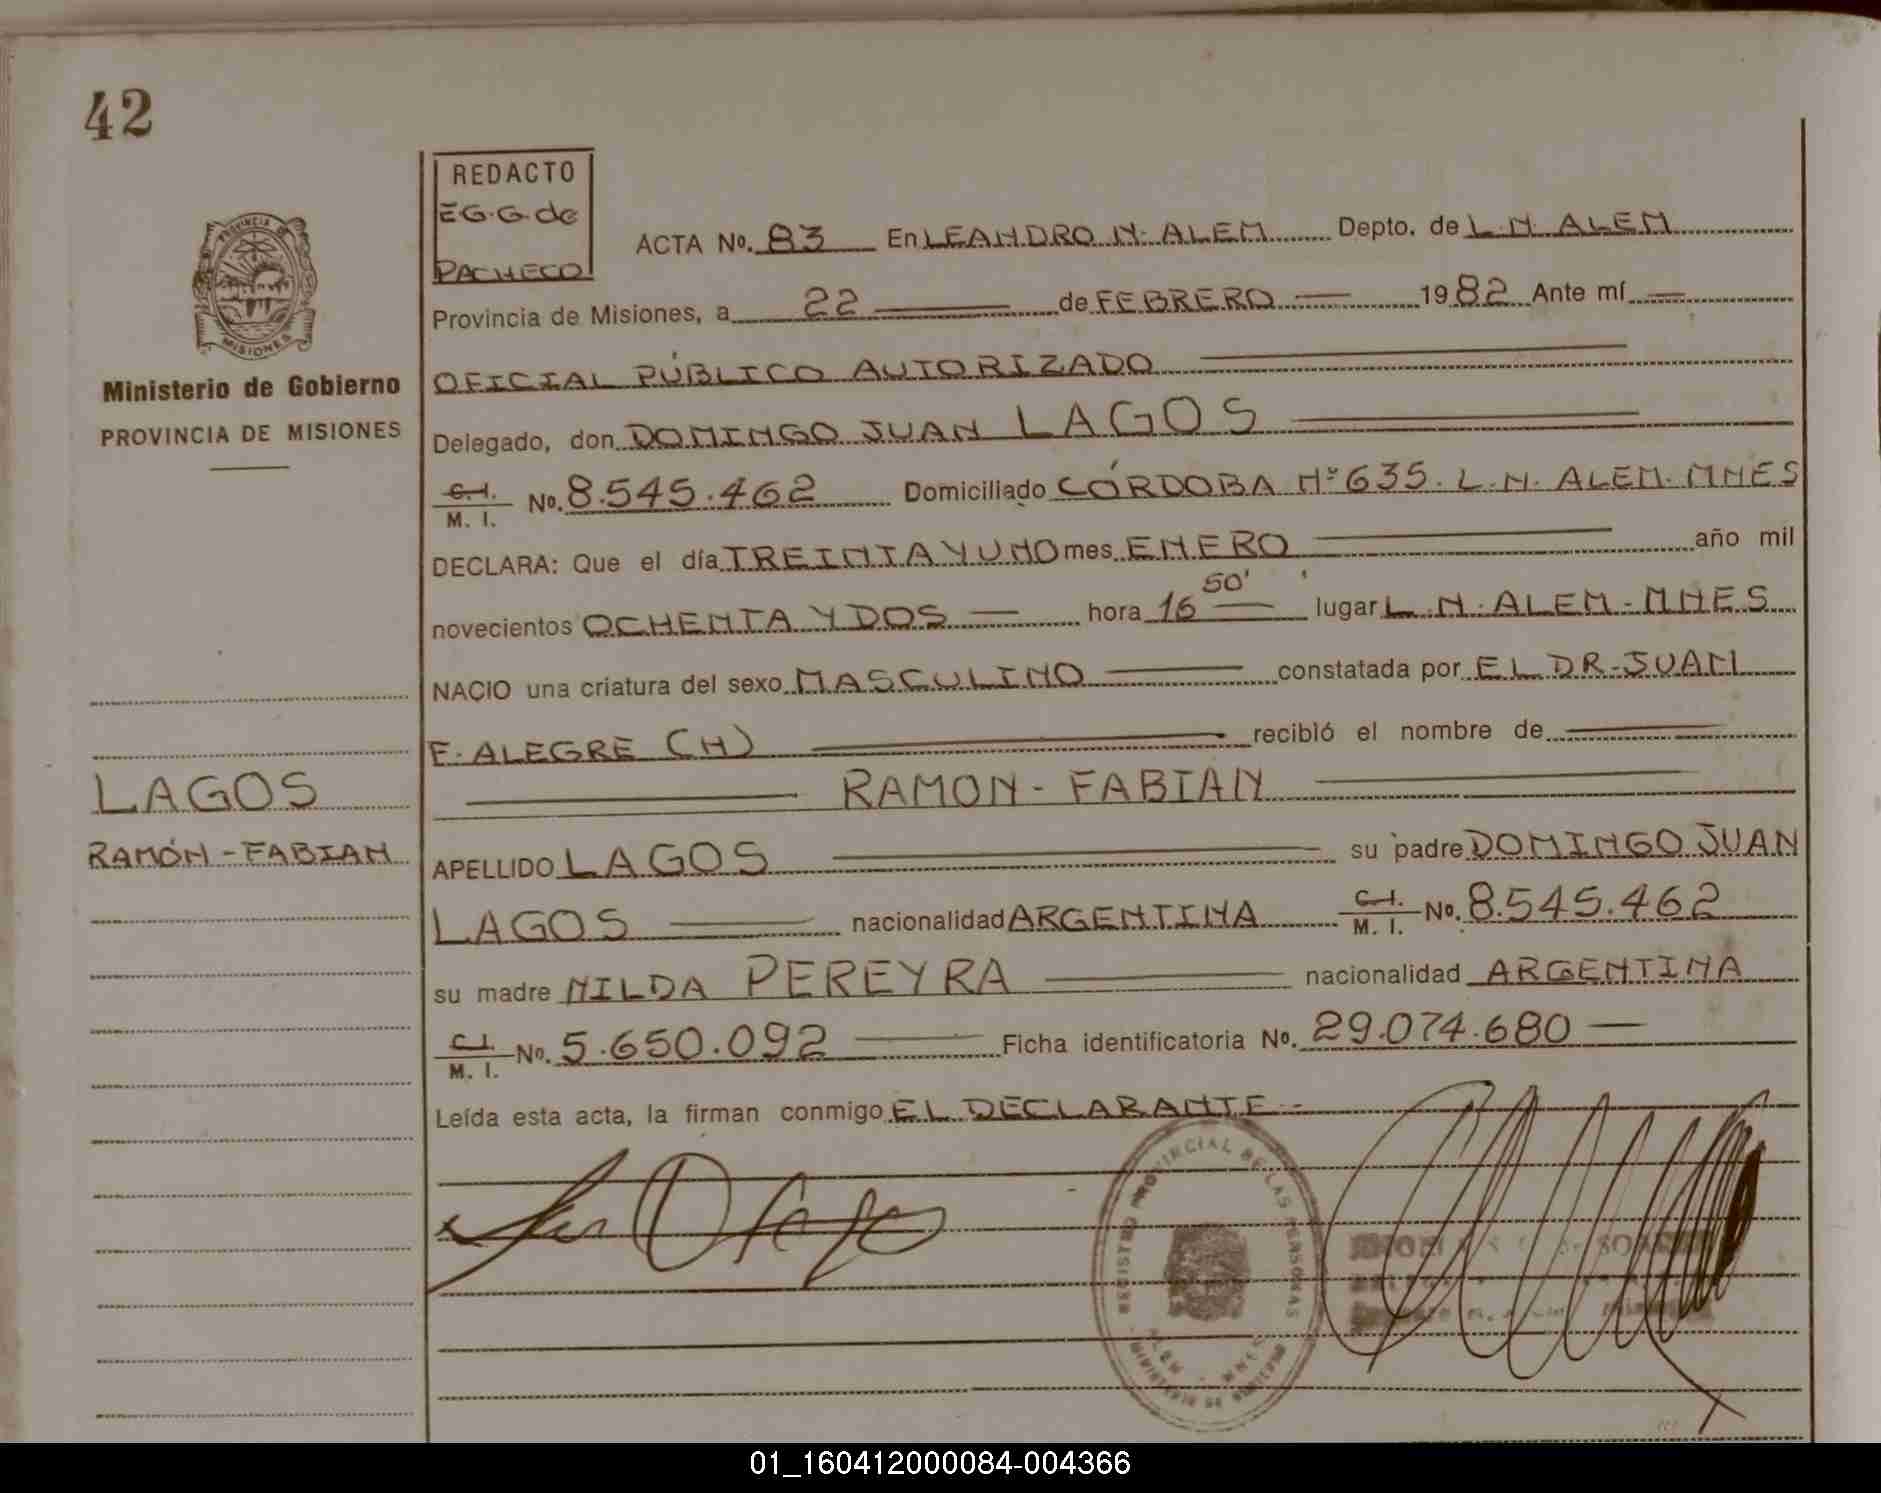 42
PROVINCIA DE
MISIONES
Ministerio de Gobierno
PROVINCIA DE MISIONES
LAGOS
RAMÓN - FABIAN
REDACTO
E.G.G. de
PACHECO
ACTA No. 83 En LEANDRO N. ALEM Depto. de L.N. ALEM
Provincia de Misiones, a 22 de FEBRERO 1982 Ante mí
OFICIAL PÚBLICO AUTORIZADO
Delegado, don DOMINGO JUAN LAGOS
C.I. M. I. No. 8.545.462 Domiciliado CÓRDOBA Nº 635. L.N. ALEM. MNES
DECLARA: Que el día TREINTA Y UNO mes ENERO año mil
novecientos OCHENTA Y DOS hora 16 50' lugar L.N. ALEM - MNES
NACIO una criatura del sexo MASCULINO constatada por EL DR. JUAN
F. ALEGRE (H) recibió el nombre de
RAMON - FABIAN
APELLIDO LAGOS su padre DOMINGO JUAN
LAGOS nacionalidad ARGENTINA C.I. M. I. No. 8.545.462
su madre NILDA PEREYRA nacionalidad ARGENTINA
C.I. M. I. No. 5.650.092 Ficha identificatoria No. 29.074.680
Leída esta acta, la firman conmigo EL DECLARANTE -
REGISTRO PROVINCIAL DE LAS PERSONAS
ALEM - MNES
MINISTERIO DE GOBIERNO
01_160412000084-004366